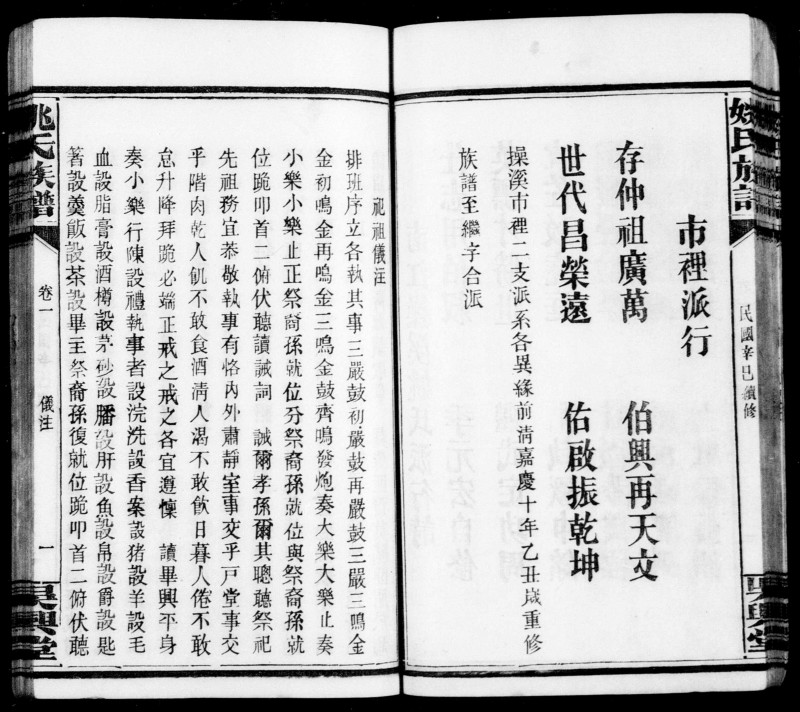 姚氏族譜
民國辛巳續修
吳興堂
市裡派行
存仲祖廣萬 伯興再天文
世代昌榮遠 佑啟振乾坤
操溪市裡二支派系各異緣前清嘉慶十年乙丑歲重修
族譜至繼字合派
祀祖儀注
排班序立各執其事三嚴鼓初嚴鼓再嚴鼓三嚴三鳴金
金初鳴金再鳴金三鳴金鼓齊鳴發炮奏大樂大樂止奏
小樂小樂止正祭裔孫就位分祭裔孫就位與祭裔孫就
位跪叩首二俯伏聽讀誡詞 誡爾孝孫爾其聰聽祭祀
先祖務宜恭敬執事有恪內外肅靜室事交乎戶堂事交
乎階肉乾人飢不敢食酒清人渴不敢飲日暮人倦不敢
怠升降拜跪必端正戒之戒之各宜遵懍 讀畢興平身
奏小樂行陳設禮執事者設浣洗設香案設猪設羊設毛
血設脂膏設酒樽設茅砂設膰設肝設魚設帛設爵設匙
箸設羹飯設茶設畢主祭裔孫復就位跪叩首二俯伏聽
姚氏族譜
卷一
儀注
一
吳興堂